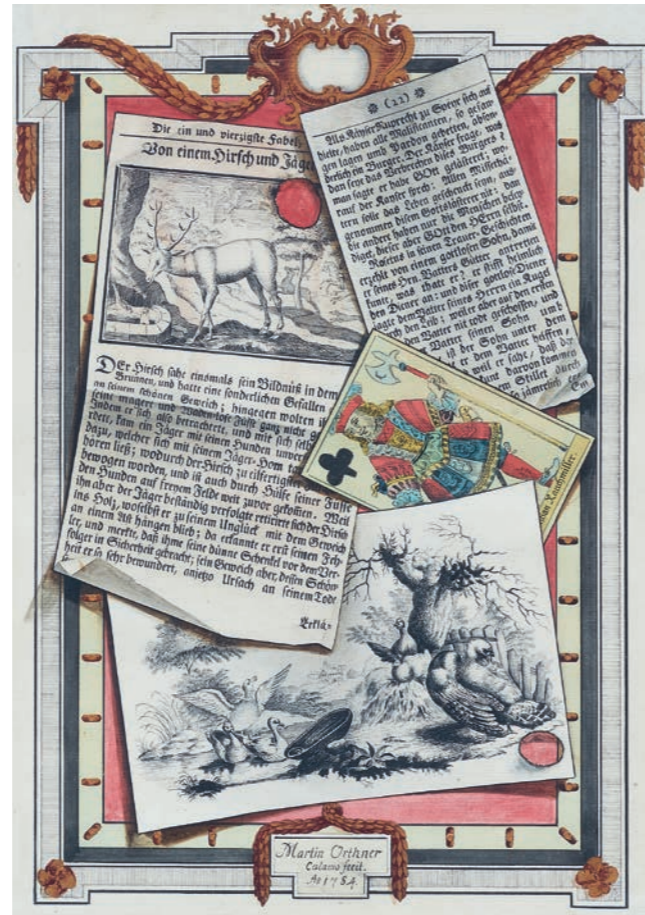 Die ein und vierzigste Fabel
Von einem Hirsch und Jäge
DEr Hirsch sahe einsmals sein Bildnüß in dem
Brunnen, und hatte eine sonderlichen Gefallen
an seinem schönen Geweich; hingegen wolten ih
seine magere und Waden-lose Füsse ganz nicht
Indem er sich also betrachtete, und mit sich selb
redete, kam ein Jäger mit seinen Hunden unver
dazu, welcher sich mit seinem Jäger-Horn
hören ließ; wodurch der Hirsch zu eilfertigster
bewogen worden, und ist auch durch Hülfe seiner Füsse
den Hunden auf freyem Felde weit zuvor gekommen. Weil
ihn aber der Jäger beständig verfolgte retirirte sich der Hirsch
ins Holz, woselbst er zu seinem Unglück mit dem Geweich
an einem Ast hängen blieb; da erkannte er erst seinen Feh-
ler, und merkte, daß ihme seine dünne Schenkel vor dem Ver-
folger in Sicherheit gebracht; sein Geweich aber, dessen Schön-
heit er so sehr bewundert, anjetzo Ursach an seinem Tode
Erklä-
(22)
Als Käyser Ruprecht zu Speyr sich auf
hielte, haben alle Malificanten, so gefan
gen lagen und Pardon gebetten, abson-
derlich ein Burger. Der Käyser fragte, was
dan seye das Verbrechen dises Burgers?
man sagte er habe GOtt gelästeret; wo-
rauf der Kayser sprch: Allen Missethä-
tern solle das Leben geschenckt seyn, aus-
genommen disem Gottslästerer nit: dan
die andere haben nur die Menschen belei-
diget, dieser aber GOtt den HErrn selbst.
Rosetus in seinen Trauer-Geschichten
erzehlt von einem gottlosen Sohn, damit
er seines Hrn. Vatters Gütter antretten
kunte, was thate er? er stifft heimlich
den Diener an: und diser gottlose Diener
jagte dem Vatter seines Herrn ein Kugel
durch den Leib; weil er aber auf den ersten
den Vatter nit tode geschossen, und
Vatter seinen Sohn umb
ist der Sohn unter dem
er dem Vatter helffen,
weil er sahe, daß der
kunt darvon kommen
Stillet durch
so jämerlich
Em
Rauchmiller.
Martin Orthner
Calamo fecit.
Ao 1784.